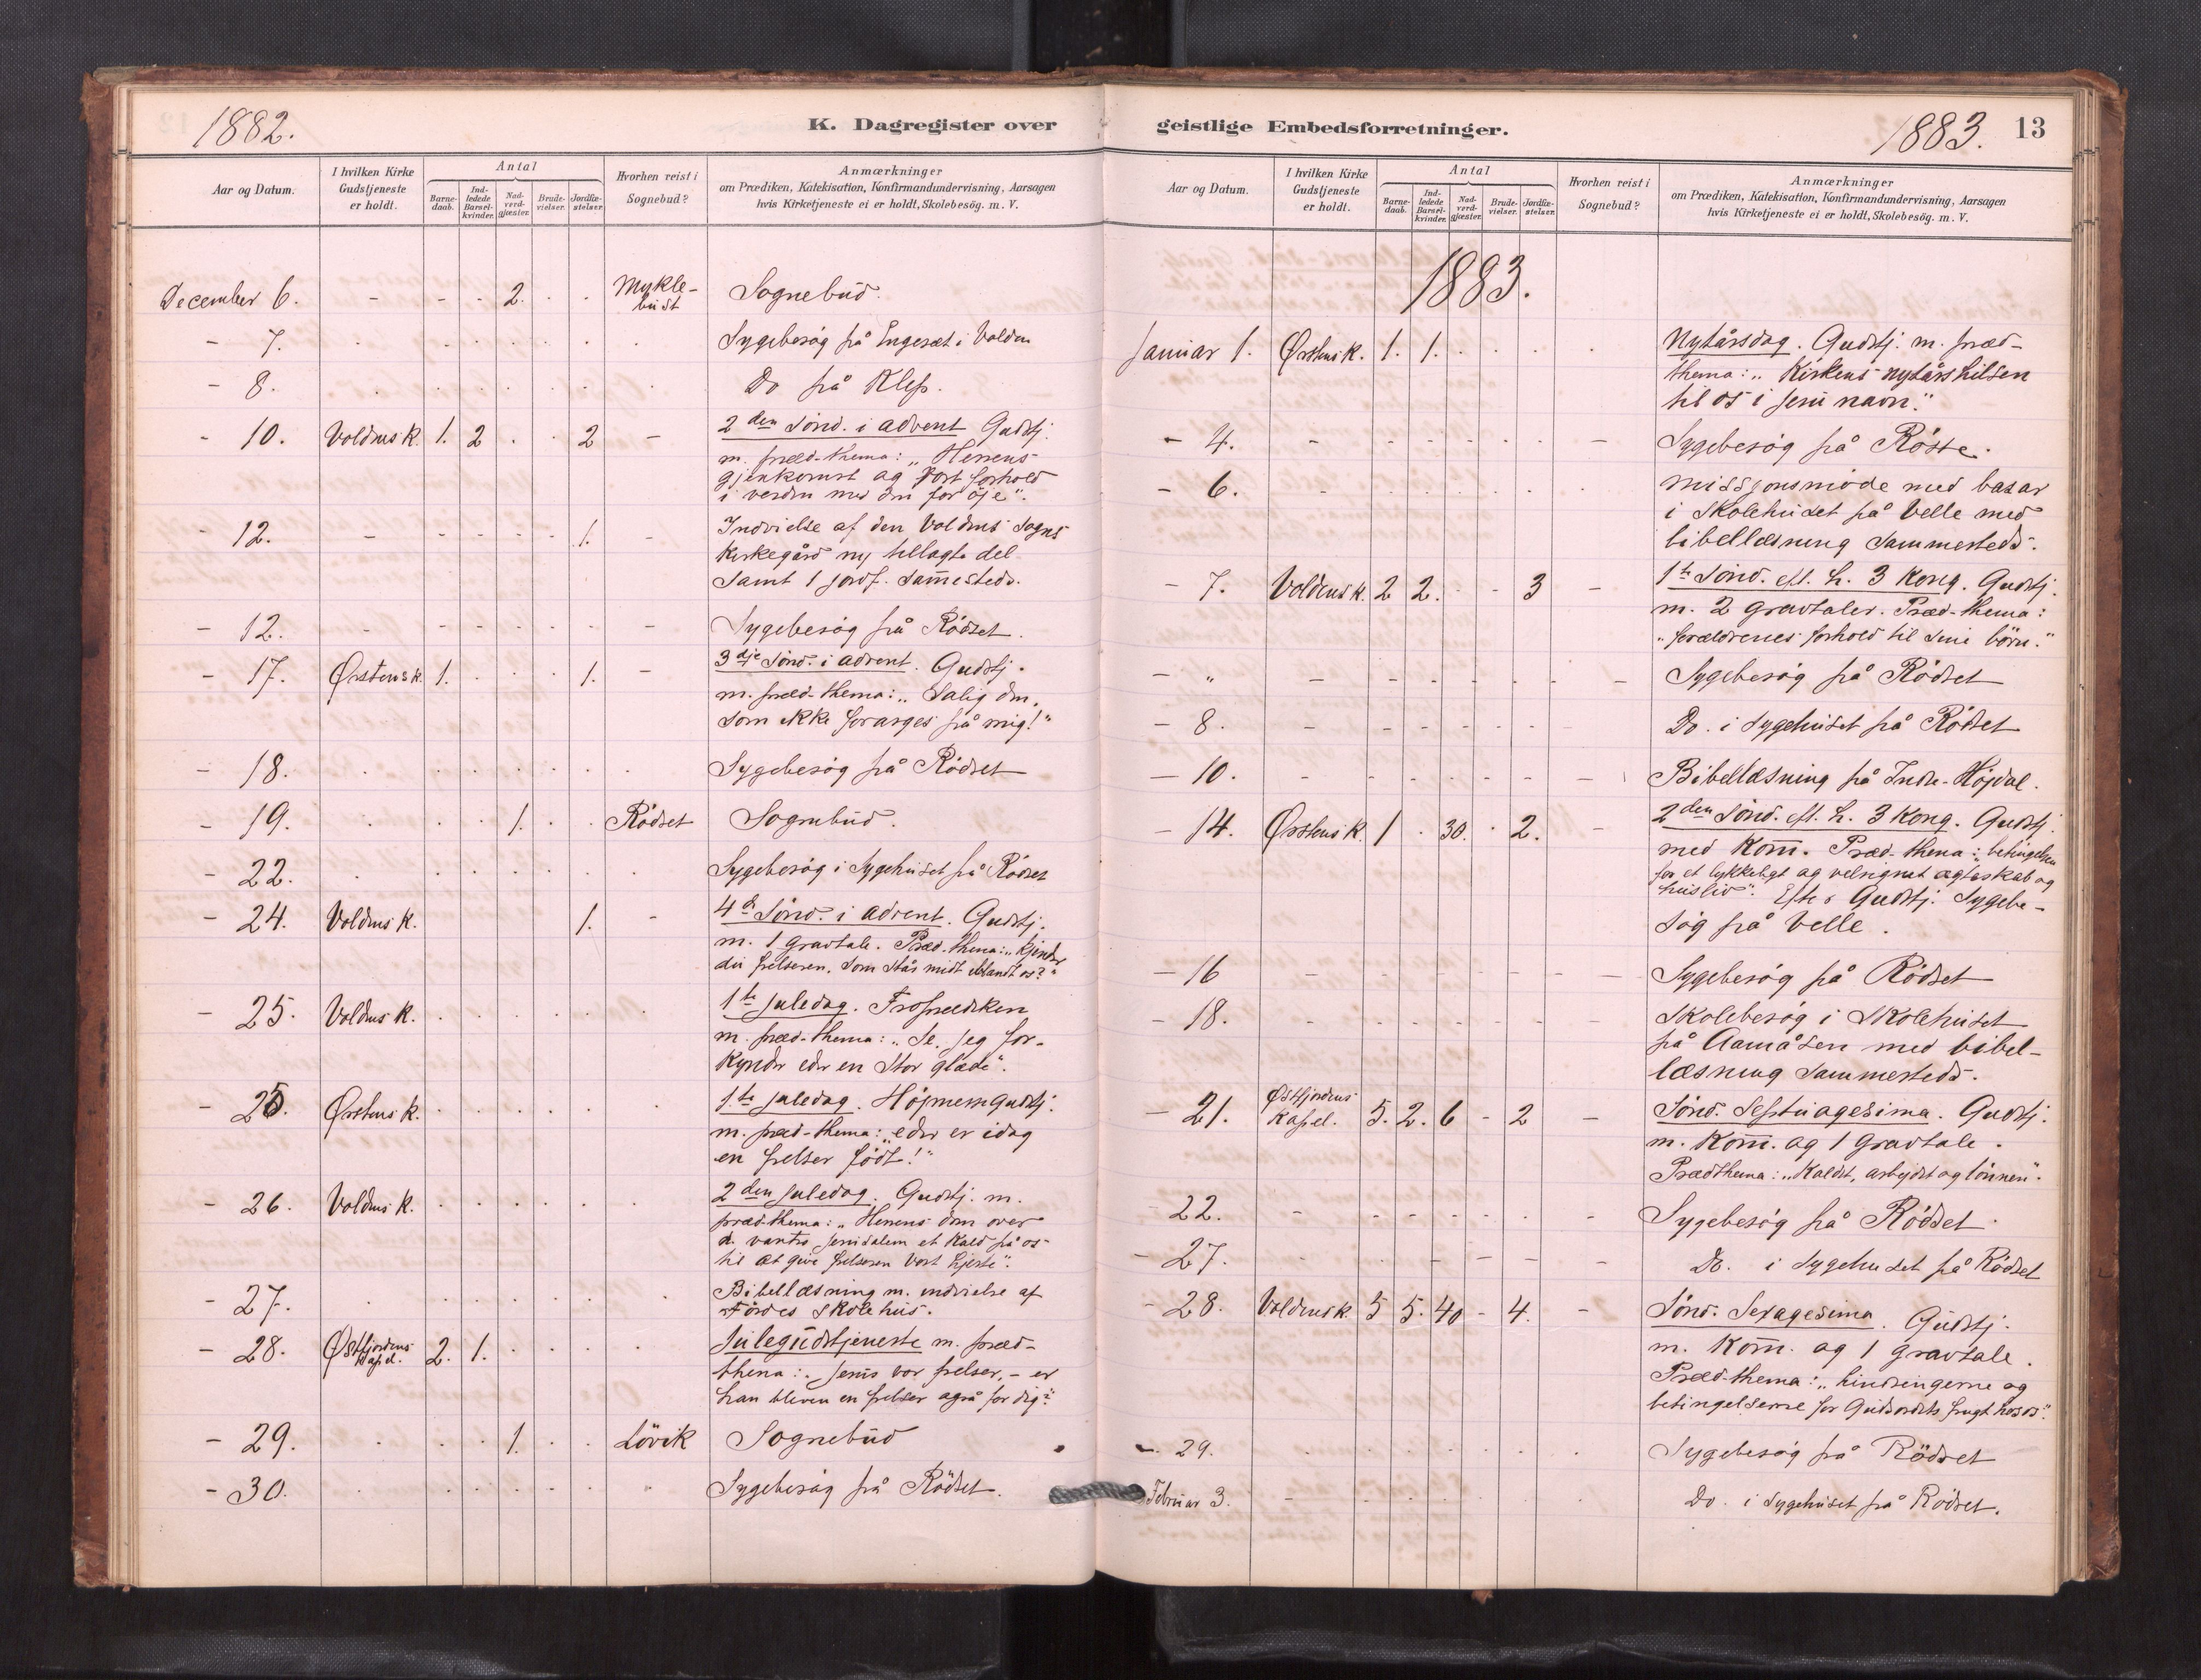 1882.
K. Dagregister over
Aar og Datum.
I hvilken Kirke Gudstjeneste er holdt.
Antal
Barne-daab.
Ind-ledede Barsel-kvinder.
Nad-verd-gjæster.
Brude-vielser.
Jordfæ-stelser.
Hvorhen reist i Sognebud?
Anmærkninger
om Prædiken, Katekisation, Konfirmandundervisning, Aarsagen
hvis Kirketjeneste ei er holdt, Skolebesög. m. V.
December 6. - - - 2. . . Mykle-bust Sognebud.
- 7. Sygebesög på Engeset i Volden
- 8. Do på Klep.
- 10. Voldens k. 1. 2 . . 2 - 2den sönd. i advent Gudstj.
m. præd-thema: „Herrens
gjenkomst og vort forhold
i verden med den for öje".
- 12. - - - - - 1. - Indvielse af den Voldens Sogns
Kirkegård ny tillagte del
samt 1 jordf. sammesteds.
- 12. - - - - - - - Sygebesög på Rödset.
- 17. Ørstens k. 1. . . . 1. - 3dje Sönd. i advent. Gudstj.
m. præd-thema: „Salig den,
som ikke forarges på mig!"
- 18. Sygebesög på Rödset
- 19. . . . 1. . . Rödset Sognebud.
- 22. Sygebesög i Sygehuset på Rödset
- 24. Voldens k. 1. - 4de Sönd. i advent. Gudstj.
m. 1 gravtale. Præd-thema: „Kjender
du frelseren, som står midt iblandt os?"
- 25. Voldens k. 1ste juledag. Froprædiken
m. præd-thema: „Se, jeg for-
kynder eder en stor glæde".
- 25. Ørstens k. 1ste juledag. Höjmessegudstj.
m. præd-thema: „eder er idag
en frelser födt!"
- 26. Voldens k. 2den juledag. Gudstj. m.
præd-thema: „Herrens dom over
d. vantro Jerusalem et kald på os
til at give frelseren vort hjerte".
- 27. Bibellæsning m. indvielse af
Födes skolehus.
- 28. Østfjordens kapel. 2. 1. Julegudstjeneste m. præd-
thema: „Jesus vor frelser, - er
han bleven en frelser også for dig?"
- 29. . . . 1. . . Lövik Sognebud
- 30. Sygebesög på Rödset.
geistlige Embedsforretninger.
1883. 13
Aar og Datum.
I hvilken Kirke Gudstjeneste er holdt.
Antal
Barne-daab.
Ind-ledede Barsel-kvinder.
Nad-verd-gjæster.
Brude-vielser.
Jordfæ-stelser.
Hvorhen reist i Sognebud?
Anmærkninger
om Prædiken, Katekisation, Konfirmandundervisning, Aarsagen
hvis Kirketjeneste ei er holdt, Skolebesög. m. V.
1883.
Januar 1. Ørstens k. 1. 1. Nytårsdag. Gudstj. m. præd-
thema: „Kirkens nytårshilsen
til os i Jesu navn."
- 4. Sygebesög på Röste.
- 6. Missjonsmöde med basar
i Skolehuset på Velle med
bibellæsning sammesteds.
- 7. Voldens k. 2 2. - - 3 - 1ste Sönd. eft. h. 3 Kong. Gudstj.
m. 2 gravtaler. Præd-thema:
„forældrenes forhold til sine börn."
- „ Sygebesög på Rödset
- 8. Do. i Sygehuset på Rödset
- 10. Bibellæsning på Indre-Höjdal.
- 14. Ørstens k. 1 . 30. . 2. - 2den Sönd. eft. h. 3 Kong. Gudstj.
med Kom̅. Præd-thema: „betingelsen
for et lykkeligt og velsignet ægteskab og
husliv". Efter Gudstj. Sygebe-
sög på Velle.
- 16 Sygebesög på Rödset
- 18. Skolebesög i Skolehuset
på Aamåsen med bibel-
læsning sammesteds.
- 21. Østfjordens kapel. 5. 2. 6 - 2 - Sönd. Septuagesima. Gudstj.
m. Kom̅. og 1 gravtale.
Prædthema: „Kaldet, arbejdet og lönnen".
- 22. Sygebesög på Rödset.
- 27. Do. i Sygehuset på Rödset
- 28. Voldens k. 5 5. 40 - 4. - Sönd. Sexagesima. Gudstj.
m. Kom̅. og 1 gravtale.
Præd-thema: „hindringerne og
betingelserne for Gudsordets frugt hos os".
- 29. Sygebesög på Rödset
Februar 3. Do. i Sygehuset på Rödset.